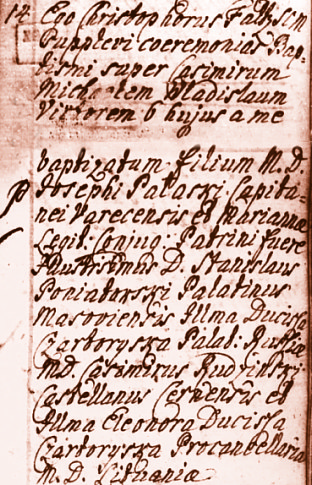 14 Ego Christophorus Faltz sim
Supplevi coeremonias Bap-
tismi super Casimirum
Michaelem Vladislaum
Victorem 6 hujus a me
baptizatum: filium M. D.
Josephi Pułaski Capita-
nei Varecensis et Mariannæ
Legit: Conjug: Patrini fuere
Illustrissimus D. Stanislaus
Poniatowski Palatinus
Masoviensis Illma Ducissa
Czartoryska Palat: Russiæ
M.D. Casimirus Rudzinski
Castellanus Cernensis et
Illma Eleonora Ducissa
Czartoryska Procancellaria
M. D. Lithuaniæ